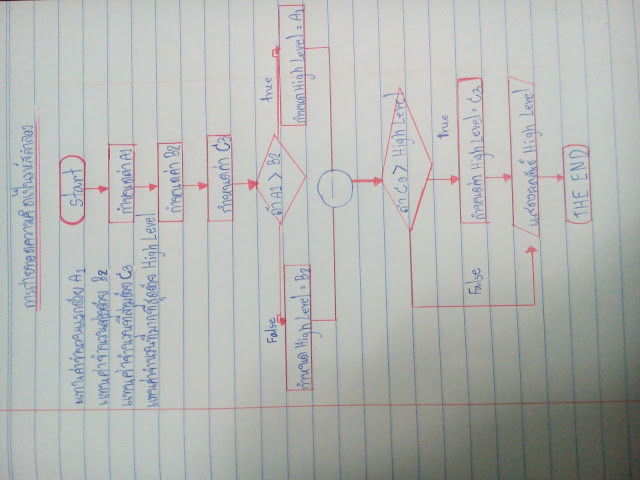 การถ่ายทอดความคิดเป็นผังจำลอง
แทนค่าจำนวนแรกด้วย A1
แทนค่าจำนวนสองด้วย B2
แทนค่าจำนวนที่สามด้วย C3
แทนค่าจำนวนที่มากที่สุดด้วย High Level
Start
กำหนดค่า A1
กำหนดค่า B2
กำหนดค่า C3
ค่า A1 > B2
true
กำหนดค่า High Level = A1
False
กำหนดค่า High Level = B2
ค่า C3 > High Level
true
กำหนดค่า High Level = C3
False
แสดงผลลัพธ์ High Level
THE END